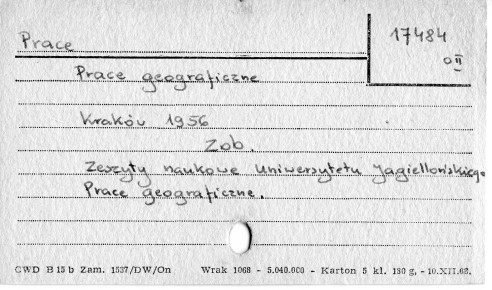 Prace
17484
a II
Prace geograficzne
Kraków 1956
Zob.
Zeszyty naukowe Uniwersytetu Jagiellońskiego
Prace geograficzne.
CWD B 15 b Zam. 1537/DW/On Wrak 1068 - 5.040.000 - Karton 5 kl. 180 g, - 10.XII.68.